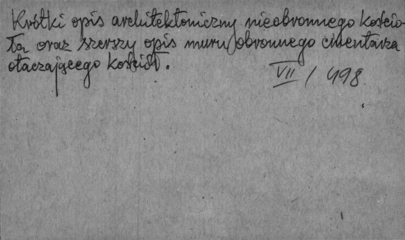 Krótki opis architektoniczny nieobronnego kościo-
ła oraz szerszy opis muru obronnego cmentarza
otaczającego kościół.
VII / 498